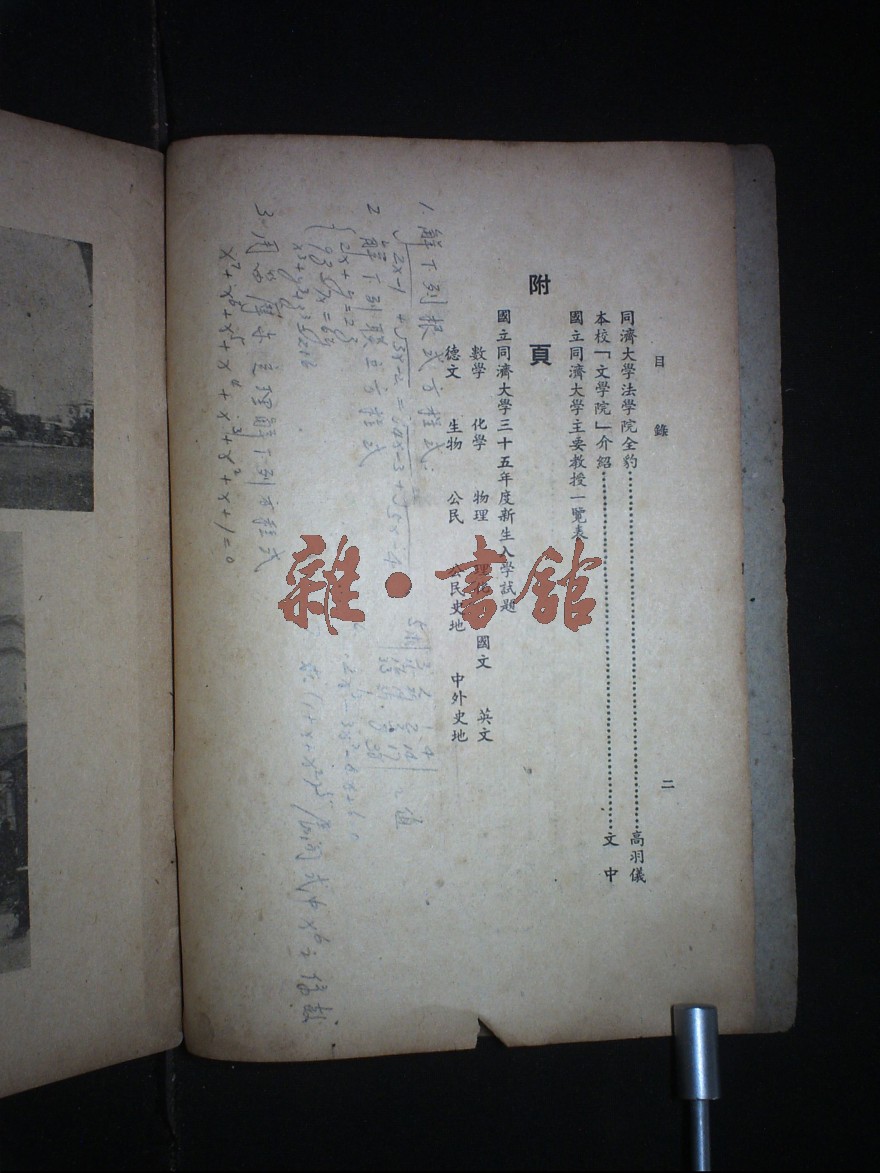 目錄
二
同濟大學法學院全豹……高羽儀
本校「文學院」介紹……文中
國立同濟大學主要教授一覽表
附頁
國立同濟大學三十五年度新生入學試題
數學 化學 物理 理化 國文 英文
德文 生物 公民 公民史地 中外史地
1. 解下列根式方程式:
√2x-1 + √3x-2 = √4x-3 + √5x-4
2 解下列聯立方程式
3.
解下列方程式
x⁷+x⁶+x⁵+x⁴+x³+x²+x+1=0
求(1+x+x²)⁵
式中x⁶之係數
雜·書館